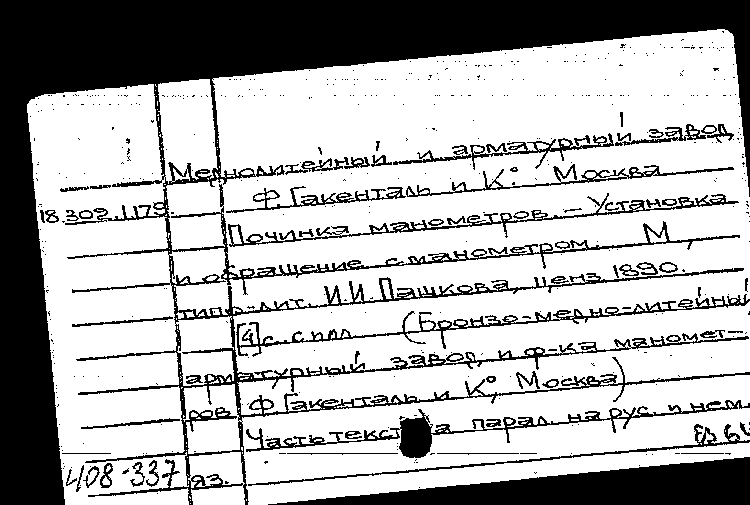 Меднолитейный и арматурный завод
Ф. Гакенталь и К°. Москва
18.302.1179
Починка манометров. – Установка
и обращение с манометром. М.,
типо-лит. И.И. Пашкова, ценз. 1890.
[4] с. с илл. (Бронзо-медно-литейный
арматурный завод и ф-ка маномет-
ров Ф. Гакенталь и К°, Москва)
Часть текста парал. на рус. и нем.
408-337 яз.